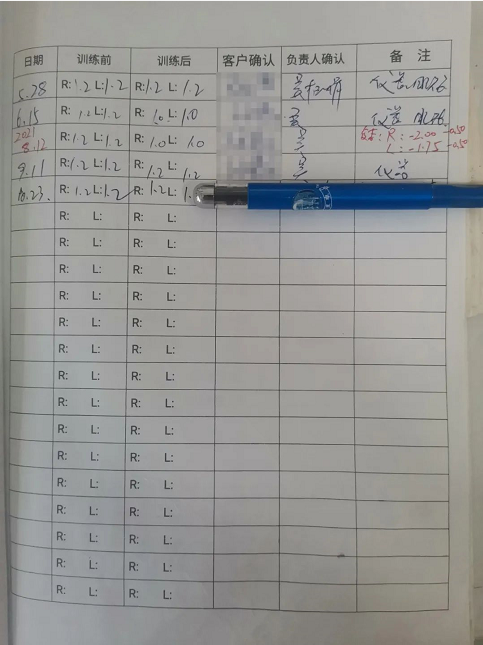 日期 训练前 训练后 客户确认 负责人确认 备 注
5.28 R:1.2 L:1.2 R:1.2 L:1.2 仪器
6.15 R: 1.2 L:1.2 R: 1.0 L:1.0 仪器
2021
8.12 R:1.2 L:1.2 R:1.0 L:1.0 R:-2.00 -0.50
L:-1.75 -0.50
9.11 R:1.2 L:1.2 R:1.2 L:1.2 仪器
10.23. R:1.2 L:1.2 R:1.2 L:1.
R: L: R: L:
R: L: R: L:
R: L: R: L:
R: L: R: L:
R: L: R: L:
R: L: R: L:
R: L: R: L:
R: L: R: L:
R: L: R: L:
R: L: R: L:
R: L: R: L:
R: L: R: L:
R: L: R: L:
R: L: R: L:
R: L: R: L: